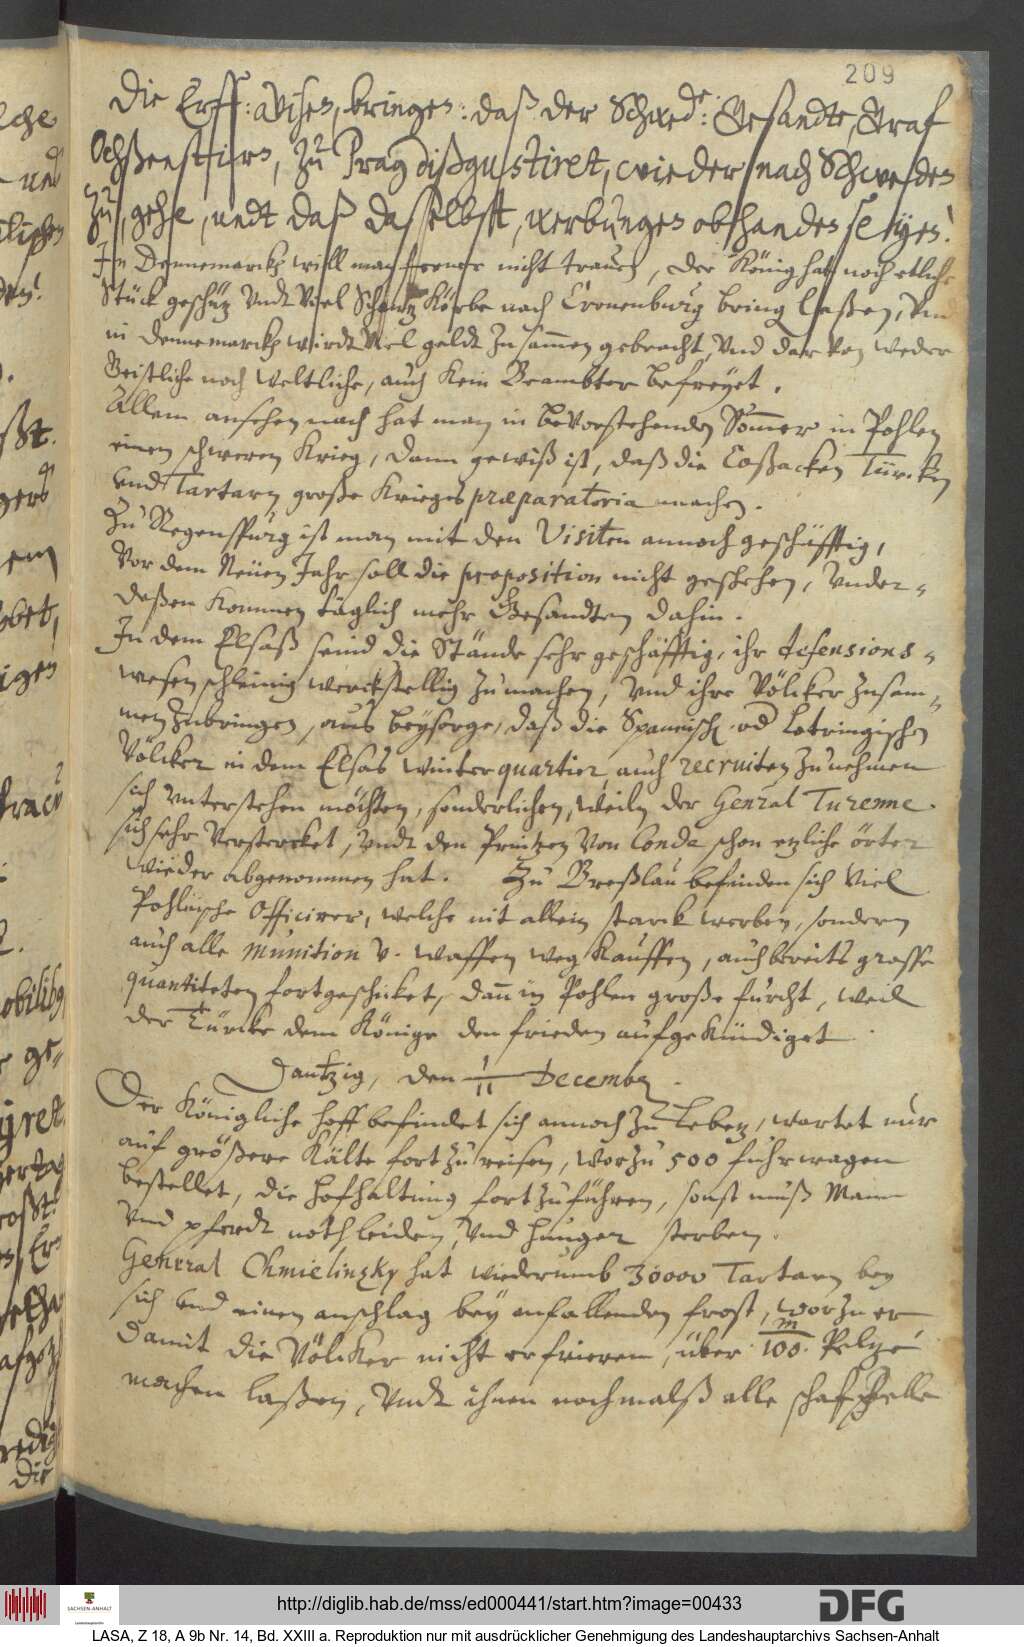 209
Die Erff: avisen, bringen: daß der Schwed: Gesandte, Graf
Ochßenstirn, zu Prag dißgustiret, wieder nach Schweden
zu, gehe, undt daß daselbst, werbungen obhanden seyen.
In Dennemarck will man ferner nicht trauen, der König hat noch etliche
Stück geschütz Vndt Viel Schantz Körbe nach Cronenburg bring laßen,
in Dennemarck wirdt Viel geldt Zusammen gebracht, Vnd darvon weder
Geistliche noch Weltliche, auch Kein Beambter befreyet.
Allem ansehen nach hat man in bevorstehenden Sommer in Pohlen
einen schweren Krieg, dann gewiß ist, daß die Coßacken Türcken
vnd Tartarn große Krieges præparatoria machen.
Zu Regenspurg ist man mit den Visiten annoch geschäfftig,
Vor dem Neuen Jahr soll die proposition nicht geschehen, Vnder-
deßen Kommen täglich mehr Gesandten dahin.
In dem Elsaß seind die Stände sehr geschäfftig, ihr defensions-
wesen schleinig werckstellig zumachen, Vnd ihre Völcker zusam-
men zubringen, aus beysorge, daß die Spannisch. od Lotringischen
Völcker in dem Elsas winterquartier auch recruiten zunehmen
sich Vnterstehen möchten, sonderlichen, weiln der Genral Turenne
sich sehr Verstercket, Vndt den Printzen Von Conde schon etzliche örter
wieder abgenommen hat. Zu Breßlau befinden sich Viel
Pohlnische Officirer, welche nit allein starck werben, sondern
auch alle munition v. waffen weg Kauffen, auch bereits grosse
quantiteten fortgeschicket, dann in Pohlen große furcht, weil
der Türcke dem Könige den frieden aufgekündiget.
Dantzig, den 1/11 Decembr.
Der Königliche hoff befindet sich annoch zu Leben, wartet nur
auf größere Kälte fortzureisen, worzu 500 fuhrwagen
bestellet, die hofhaltung fortzuführen, sonst muß Mann
Vnd pferdt noth leiden, Vnd hunger sterben.
General Chmielinzky hat wiederumb 30000 Tartarn bey
sich vnd einen anschlag bey anfallenden frost, worzu er
damit die Völcker nicht erfrieren, über 100.m Peltze
machen laßen, Vndt ihnen nochmalß alle schaffelle
http://diglib.hab.de/mss/ed000441/start.htm?image=00433
DFG
SACHSEN-ANHALT
LASA, Z 18, A 9b Nr. 14, Bd. XXIII a. Reproduktion nur mit ausdrücklicher Genehmigung des Landeshauptarchivs Sachsen-Anhalt